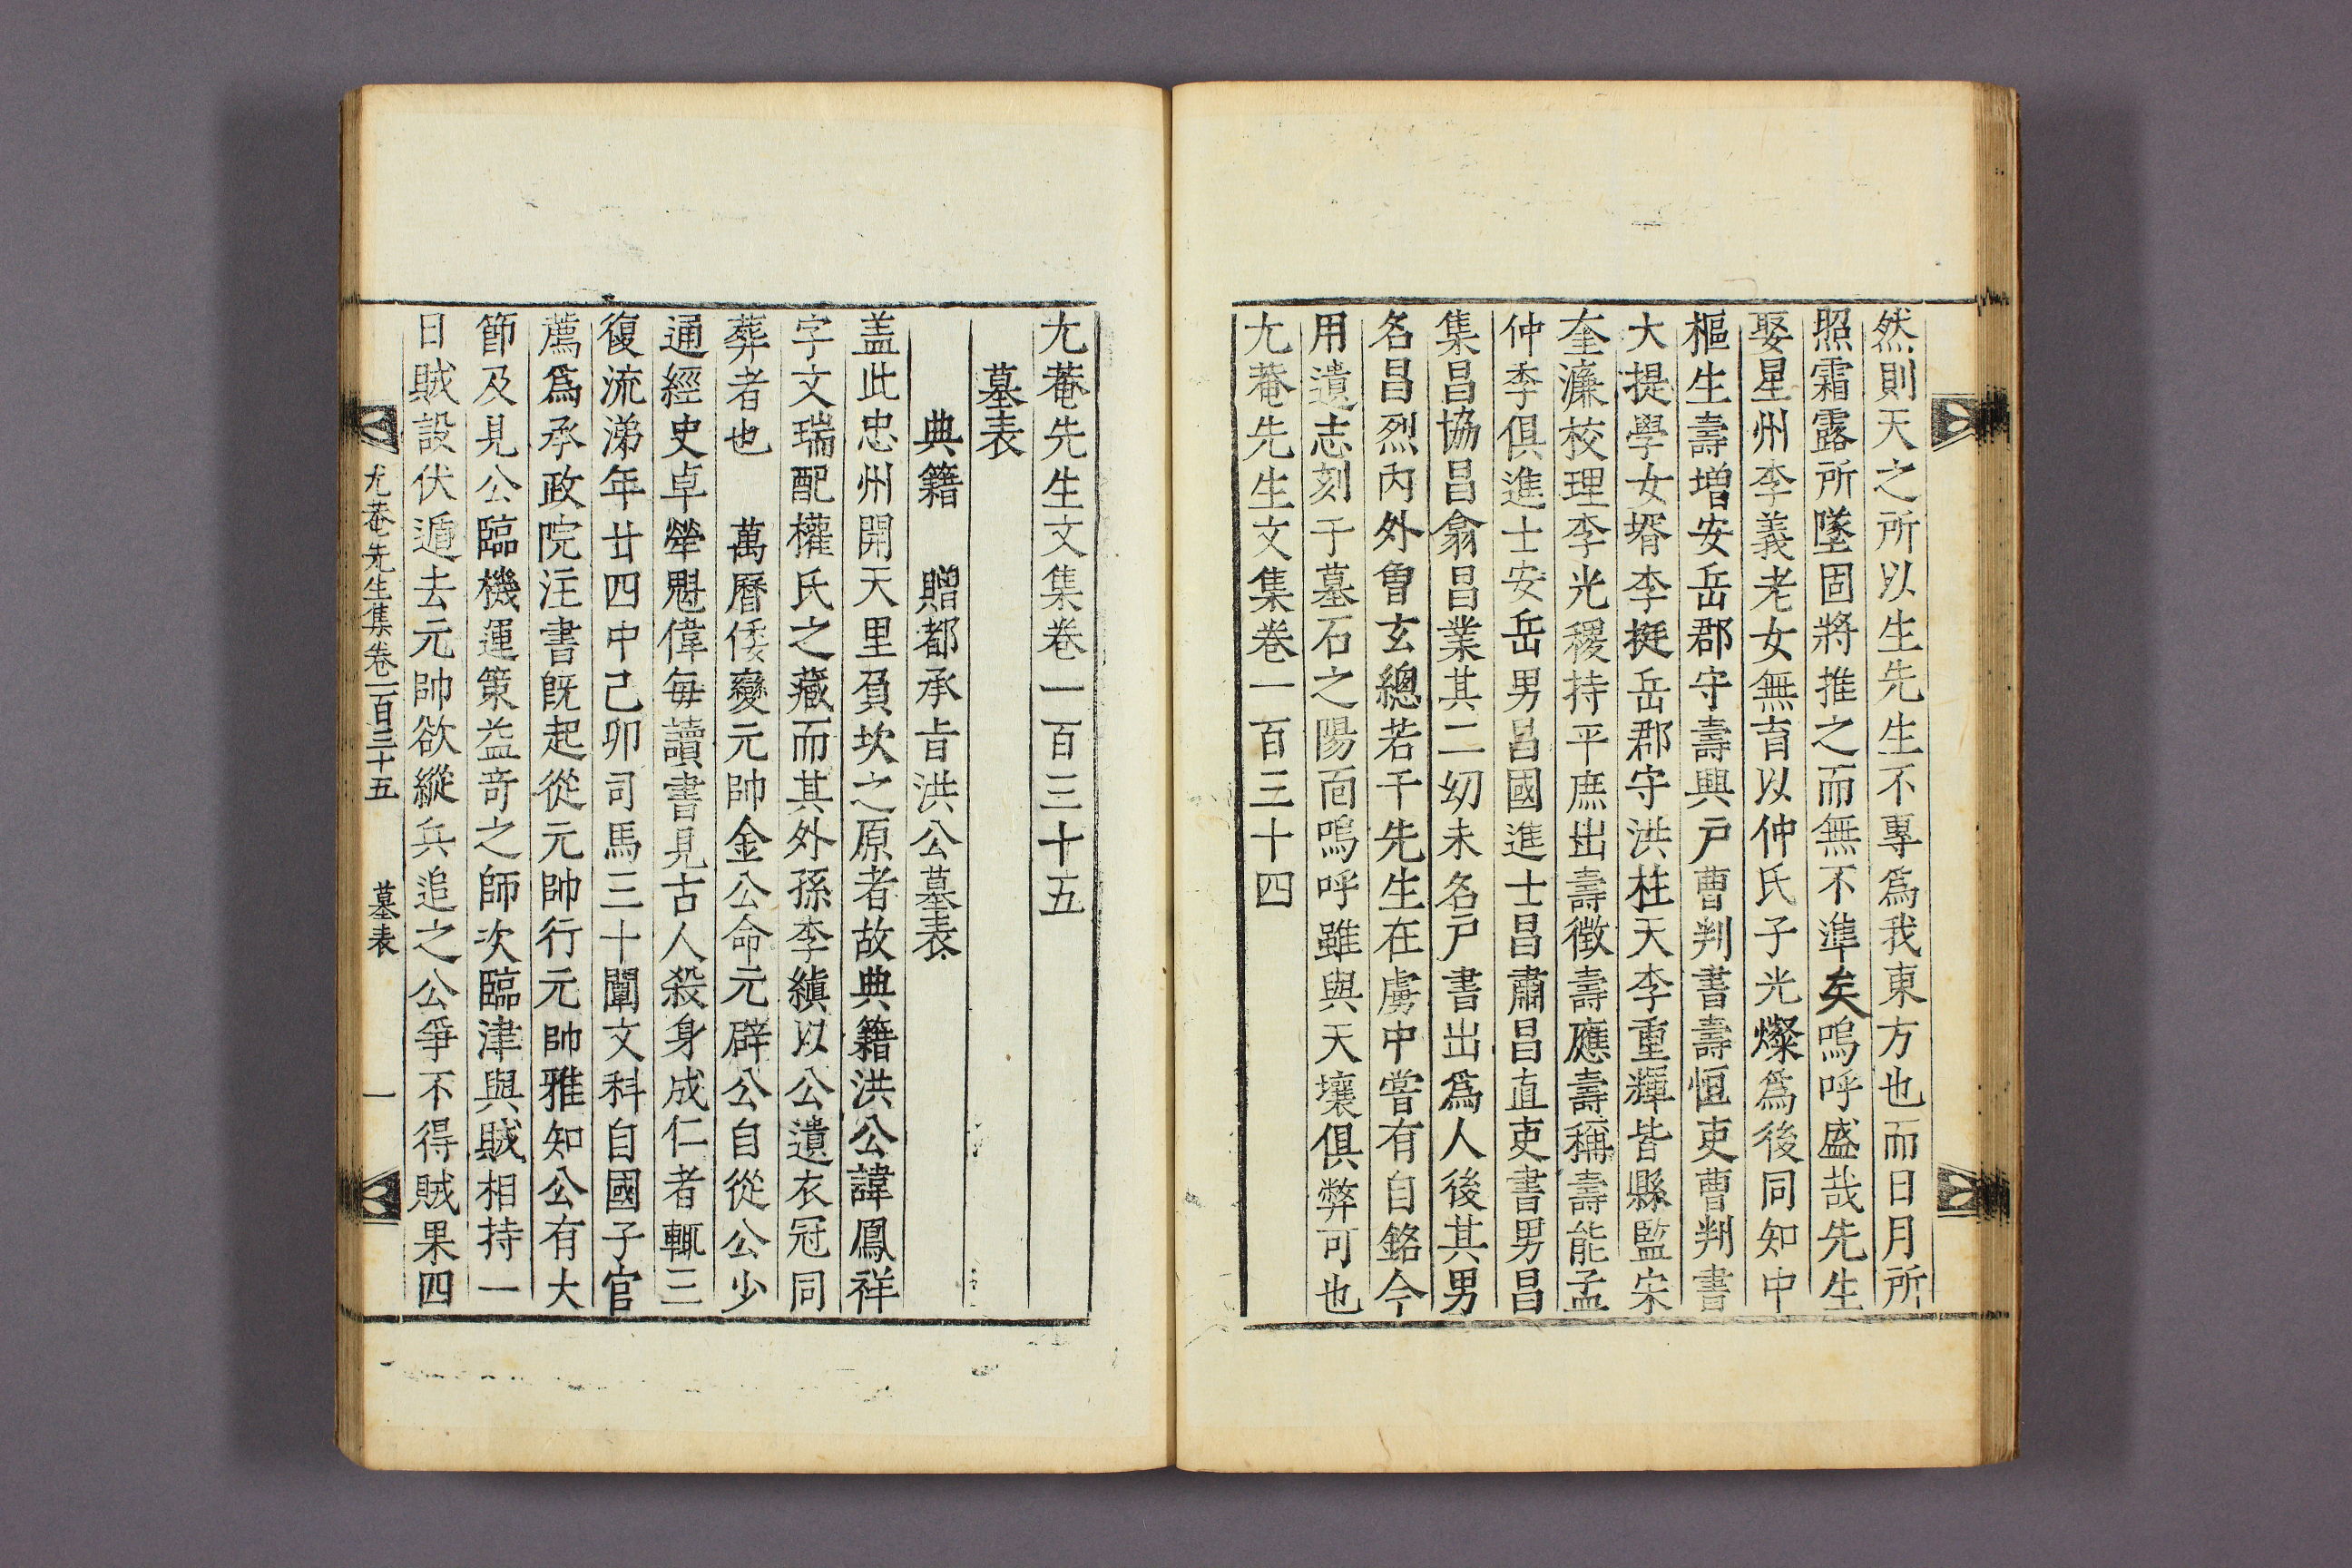 然則天之所以生先生不專爲我東方也而日月所
照霜露所墜固將推之而無不準矣嗚呼盛哉先生
娶星州李義老女無育以仲氏子光燦爲後同知中
樞生壽增安岳郡守壽興戶曹判書壽恒吏曹判書
大提學女壻李挺岳郡守洪柱天李重輝皆縣監宋
奎濂校理李光稷持平庶出壽徵壽應壽稱壽能孟
仲季俱進士安岳男昌國進士昌肅昌直吏書男昌
集昌協昌翕昌業其二幼未名戶書出爲人後其男
名昌烈內外曾玄總若干先生在虜中嘗有自銘今
用遺志刻于墓石之陽面嗚呼雖與天壤俱弊可也
尤菴先生文集卷一百三十四
尤菴先生文集卷一百三十五
墓表
典籍 贈都承旨洪公墓表
盖此忠州開天里負坎之原者故典籍洪公諱鳳祥
字文瑞配權氏之藏而其外孫李縝以公遺衣冠同
葬者也 萬曆倭變元帥金公命元辟公自從公少
通經史卓犖魁偉每讀書見古人殺身成仁者輒三
復流涕年廿四中己卯司馬三十闡文科自國子官
薦爲承政院注書旣起從元帥行元帥雅知公有大
節及見公臨機運策益奇之師次臨津與賊相持一
日賊設伏遁去元帥欲縱兵追之公爭不得賊果四
尤菴先生集卷一百三十五 墓表 一